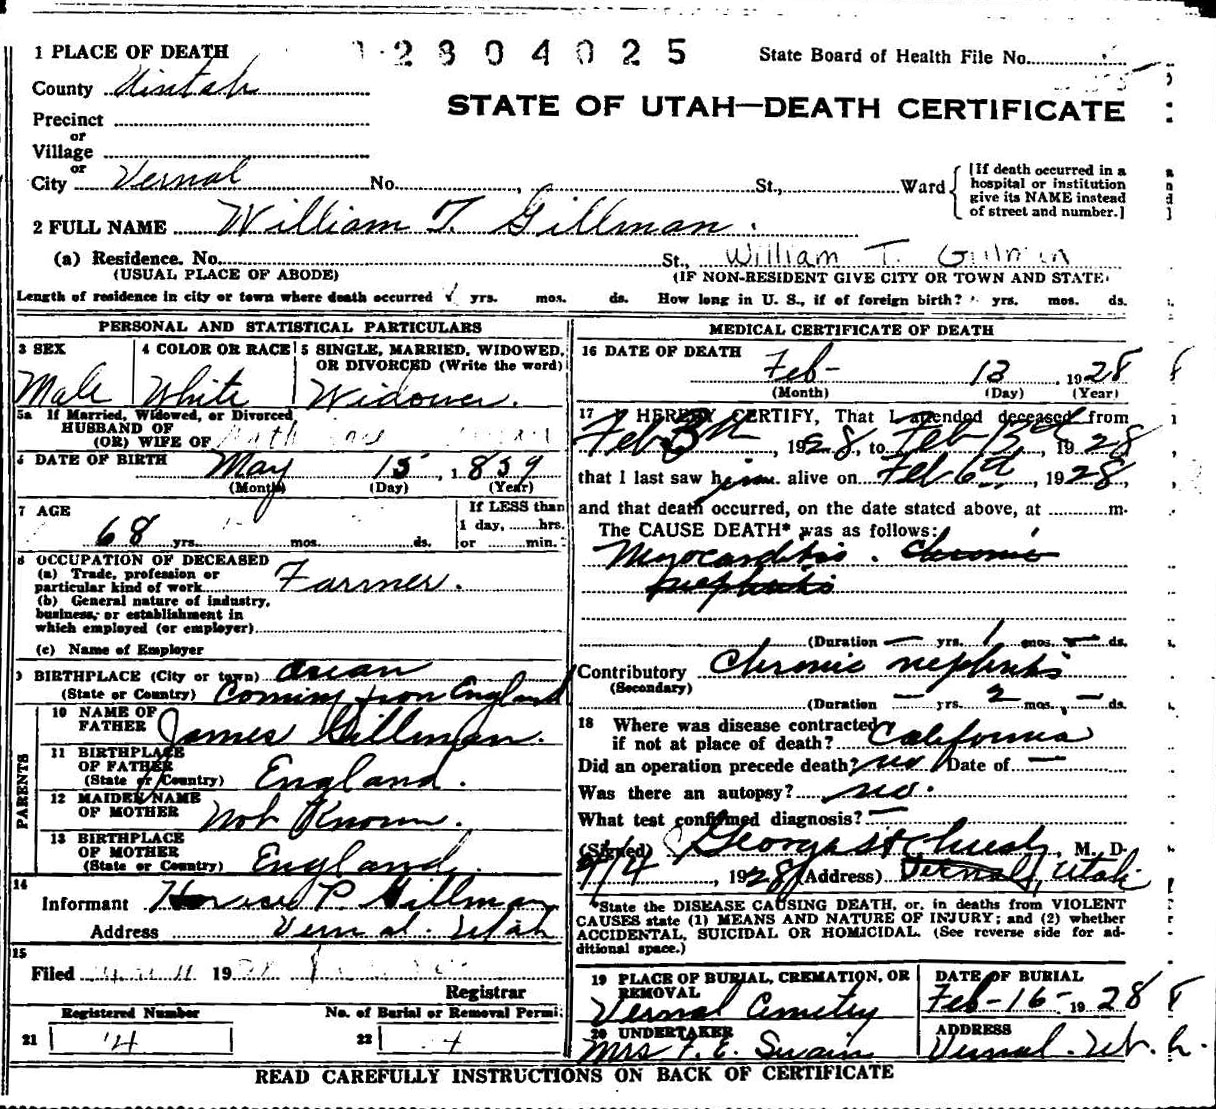 1 PLACE OF DEATH
2804025
State Board of Health File No.
County Uintah
STATE OF UTAH—DEATH CERTIFICATE
Precinct
or
Village
or
City Vernal No. , St., Ward
[If death occurred in a
hospital or institution
give its NAME instead
of street and number.]
2 FULL NAME William T. Gillman.
(a) Residence. No. St., William T. Gillman
(USUAL PLACE OF ABODE) (IF NON-RESIDENT GIVE CITY OR TOWN AND STATE
Length of residence in city or town where death occurred yrs. mos. ds. How long in U. S., if of foreign birth? yrs. mos. ds.
PERSONAL AND STATISTICAL PARTICULARS
3 SEX
Male
4 COLOR OR RACE
White
5 SINGLE, MARRIED, WIDOWED,
OR DIVORCED (Write the word)
Widower.
5a If Married, Widowed, or Divorced
HUSBAND OF
(OR) WIFE OF
6 DATE OF BIRTH May 15, 1859
(Month) (Day) (Year)
7 AGE
68 yrs. mos. ds.
If LESS than
1 day, hrs.
or min.
8 OCCUPATION OF DECEASED
(a) Trade, profession or
particular kind of work Farmer.
(b) General nature of industry,
business, or establishment in
which employed (or employer)
(c) Name of Employer
9 BIRTHPLACE (City or town) Ocean
(State or Country) Coming from England
PARENTS
10 NAME OF
FATHER James Gillman.
11 BIRTHPLACE
OF FATHER
(State or Country) England.
12 MAIDEN NAME
OF MOTHER Not Known.
13 BIRTHPLACE
OF MOTHER
(State or Country) England.
14
Informant P. Gillman
Address Vernal. Utah
15
Filed 19
Registrar
Registered Number No. of Burial or Removal Permi
21 14 22 4
MEDICAL CERTIFICATE OF DEATH
16 DATE OF DEATH
Feb- 13, 1928
(Month) (Day) (Year)
17 I HEREBY CERTIFY, That I attended deceased from
Feb 3rd, 1928, to Feb 13th 1928
that I last saw him alive on Feb 6th, 1928,
and that death occurred, on the date stated above, at m.
The CAUSE DEATH* was as follows:
Myocarditis. Chronic
nephritis
(Duration — yrs. 1 mos. — ds.
Contributory Chronic nephritis
(Secondary)
(Duration — yrs. 2 mos. — ds.
18 Where was disease contracted
if not at place of death? California
Did an operation precede death? no Date of —
Was there an autopsy? no.
What test confirmed diagnosis? —
(Signed) George H, M. D.
9/4, 1928 (Address) Vernal, Utah
*State the DISEASE CAUSING DEATH, or, in deaths from VIOLENT
CAUSES state (1) MEANS AND NATURE OF INJURY; and (2) whether
ACCIDENTAL, SUICIDAL OR HOMICIDAL. (See reverse side for ad-
ditional space.)
19 PLACE OF BURIAL, CREMATION, OR
REMOVAL
Vernal Cemetery
DATE OF BURIAL
Feb-16- 1928
20 UNDERTAKER
Mrs F. E. Swain
ADDRESS
Vernal. Utah.
READ CAREFULLY INSTRUCTIONS ON BACK OF CERTIFICATE